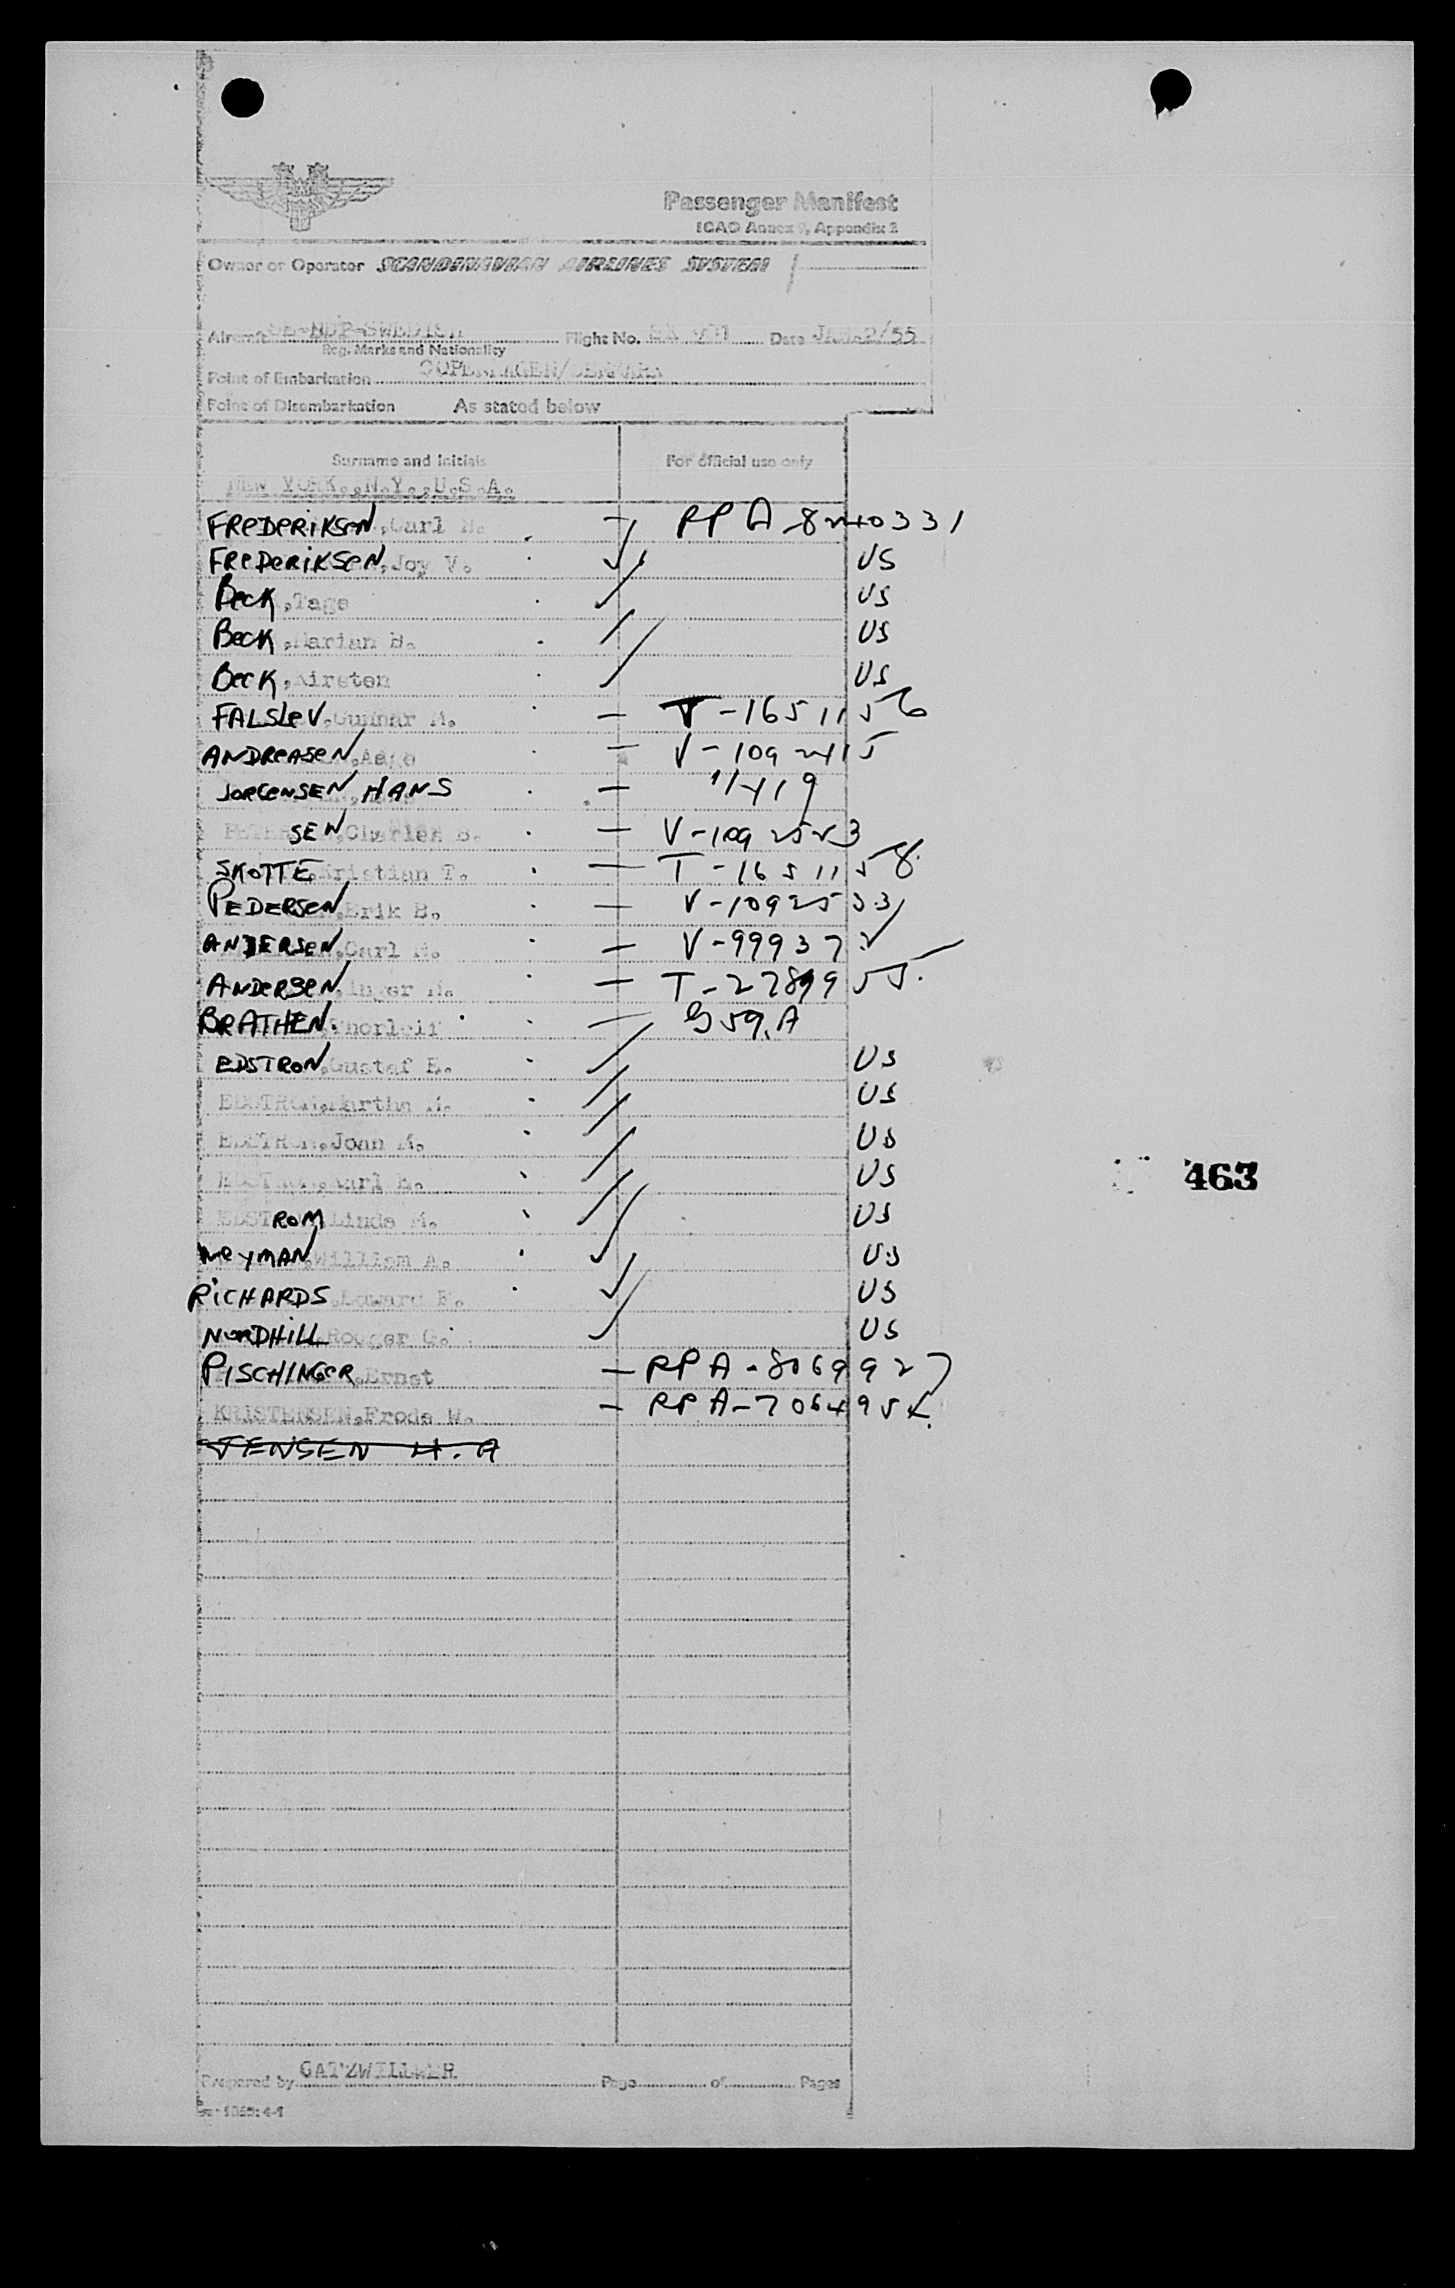 Passenger Manifest
ICAO Annex 9, Appendix 2
Owner or Operator SCANDINAVIAN AIRLINES SYSTEM
Aircraft Flight No. Date JAN.2/55
Reg. Marks and Nationality
Point of Embarkation COPENHAGEN/DENMARK
Point of Disembarkation As stated below
Surname and Initials For official use only
NEW YORK.,N.Y.,U.S.A.
FREDERIKSEN,Carl — RP A-8240331
FREDERIKSEN,Joy V. US
Beck,Tage US
Beck,Marian B. US
Beck,Kirsten US
FALSLEV,Gunnar M. — T-1651156
ANDREASEN,Aage — V-1092415
JORGENSEN, HANS —
SEN,Charles S. — V-1092523
SKOTTE,Kristian T. — T-1651158
PEDERSEN,Erik B. — V-1092533
ANDERSEN,Carl — V-99937
ANDERSEN,Inger —
BRATHEN,Thorleif —
EDSTRON,Gustaf E. US
EDSTRON,Martha US
EDSTRON,Joan M. US
EDSTRON,Carl US
EDSTROM,Linda M. US
WEYMAN,William A. US
RICHARDS,Edward US
NORDHILL,Rodger US
PISCHINGER,Ernst — RP A-8069927
KRISTENSEN,Frode W. — RP A-706495
JENSEN H.A
463
Prepared by GATZWILLER Page of Pages